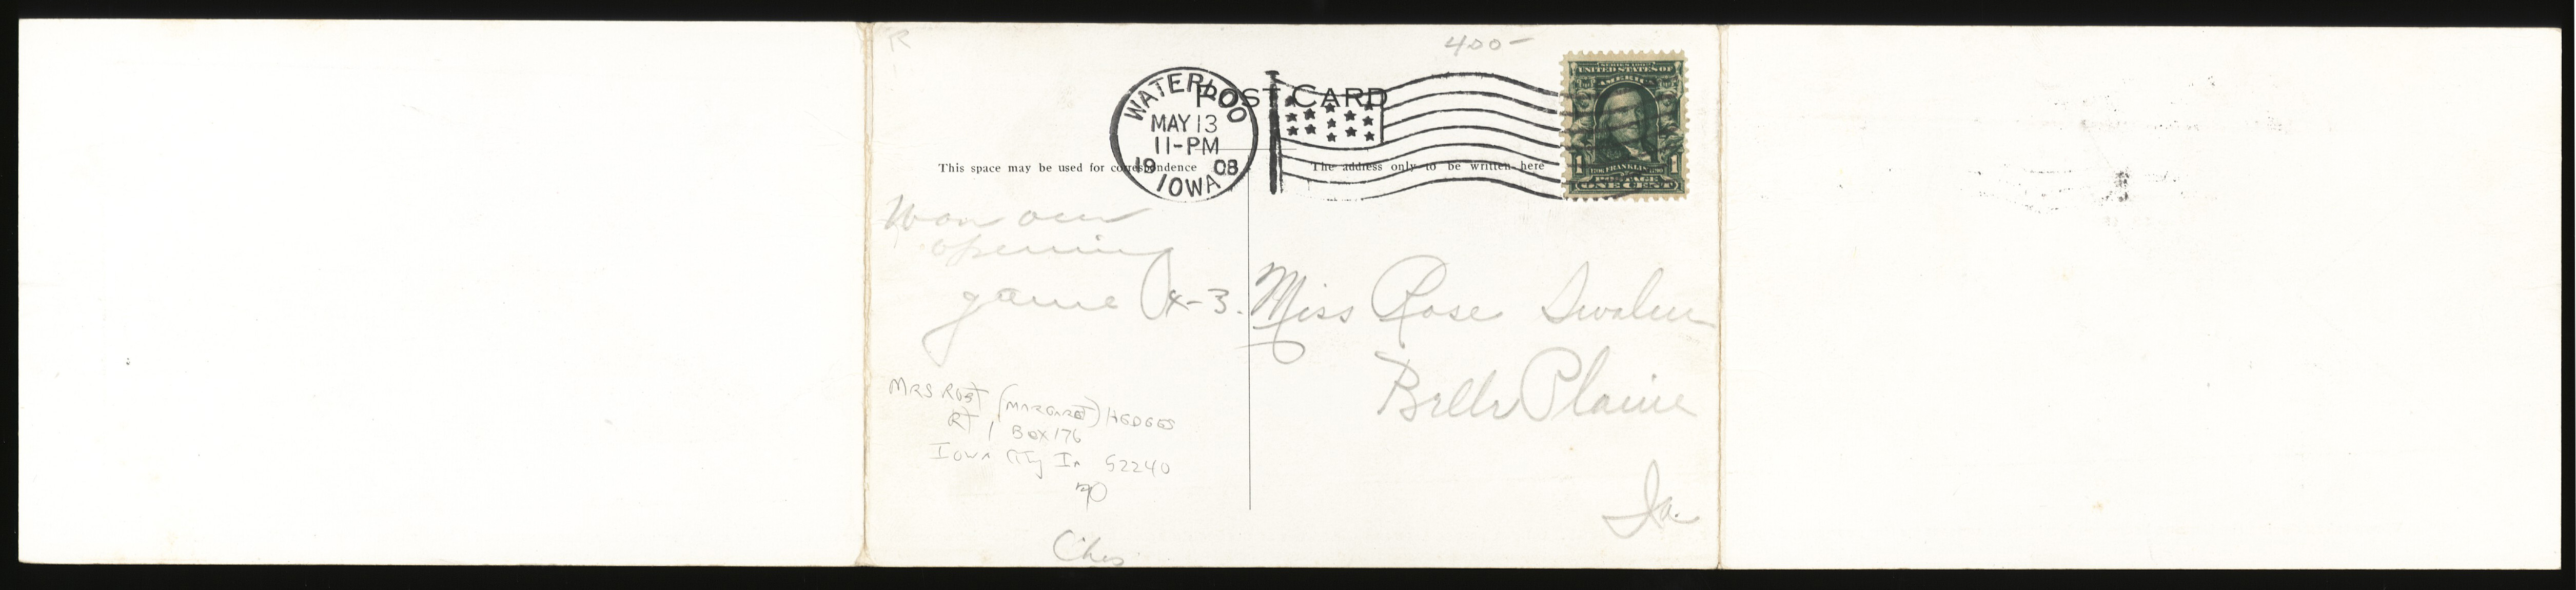 R
400-
POST CARD
WATERLOO
MAY 13
11-PM
1908
IOWA
SERIES 1902
UNITED STATES OF
AMERICA
1 FRANKLIN 1
POSTAGE
ONE CENT
This space may be used for correspondence
The address only to be written here
Won our
opening
game
Miss Rose
Belle Plaine
Ia.
MRS ROBT (MARGARET) HEDGES
RT 1 BOX 176
IOWA CITY IA 52240
Ches